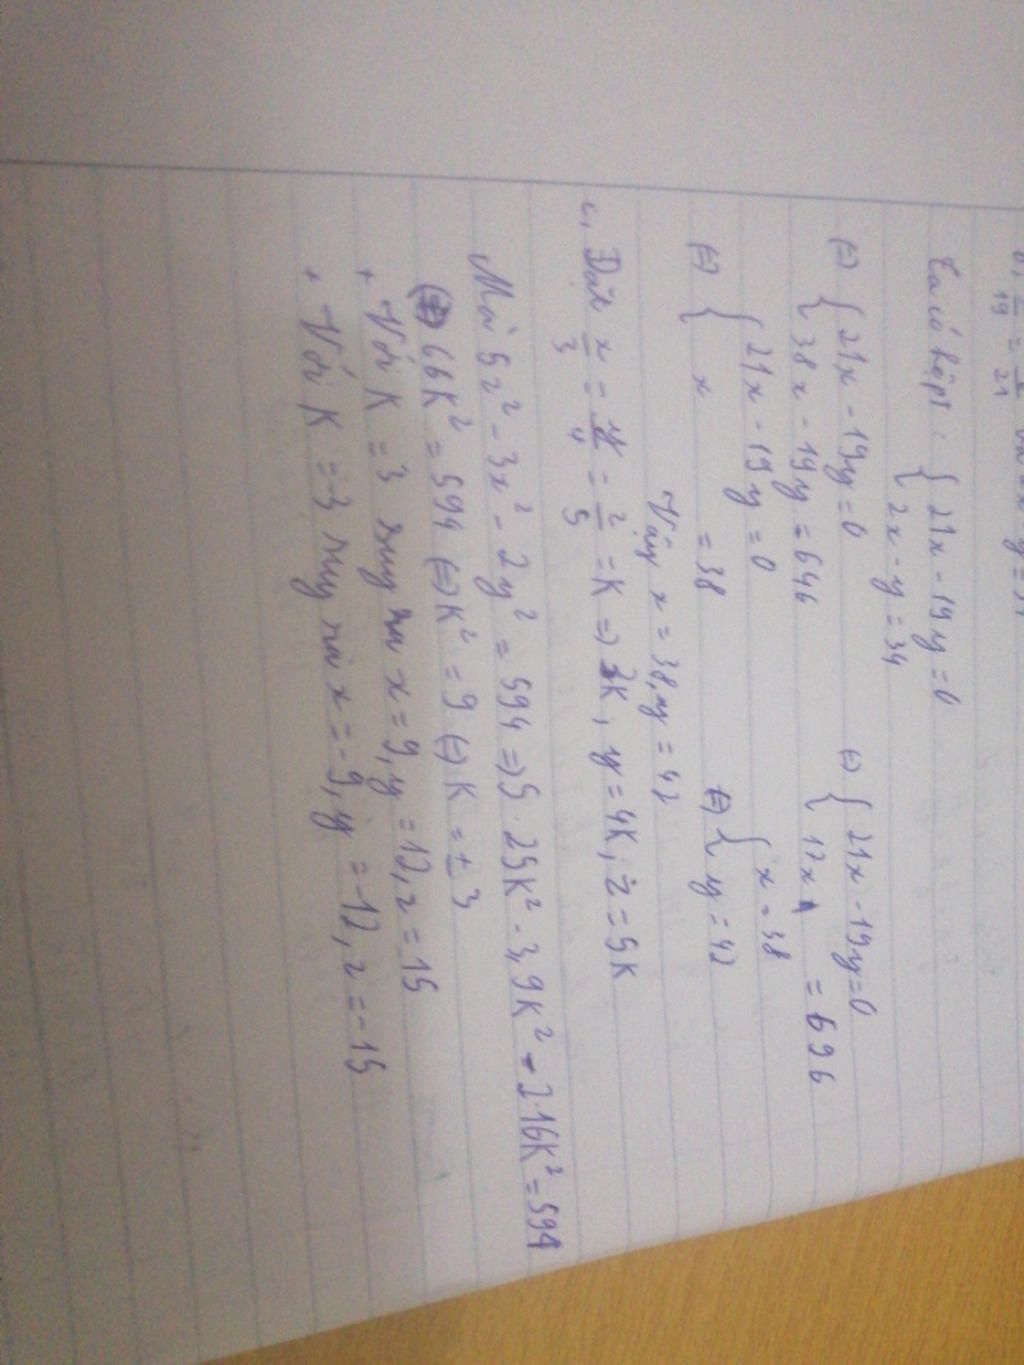 b, x/19 = y/21 và 2x-y=34
Ta có hệ pt: { 21x - 19y = 0
2x - y = 34
(=) { 21x - 19y = 0
38x - 19y = 646
(=) { 21x - 19y = 0
17x = 646
(=) { 21x - 19y = 0
x = 38
(=) { x = 38
y = 42
Vậy x = 38, y = 42
c, Đặt x/3 = y/4 = z/5 = K => 3K, y = 4K, z = 5K
Mà 5z² - 3x² - 2y² = 594 => 5. 25K² - 3. 9K² - 2.16K² = 594
(=) 66K² = 594 (=) K² = 9 (=) K = ± 3
+ Với K = 3 suy ra x = 9, y = 12, z = 15
+ Với K = -3 suy ra x = -9, y = -12, z = -15